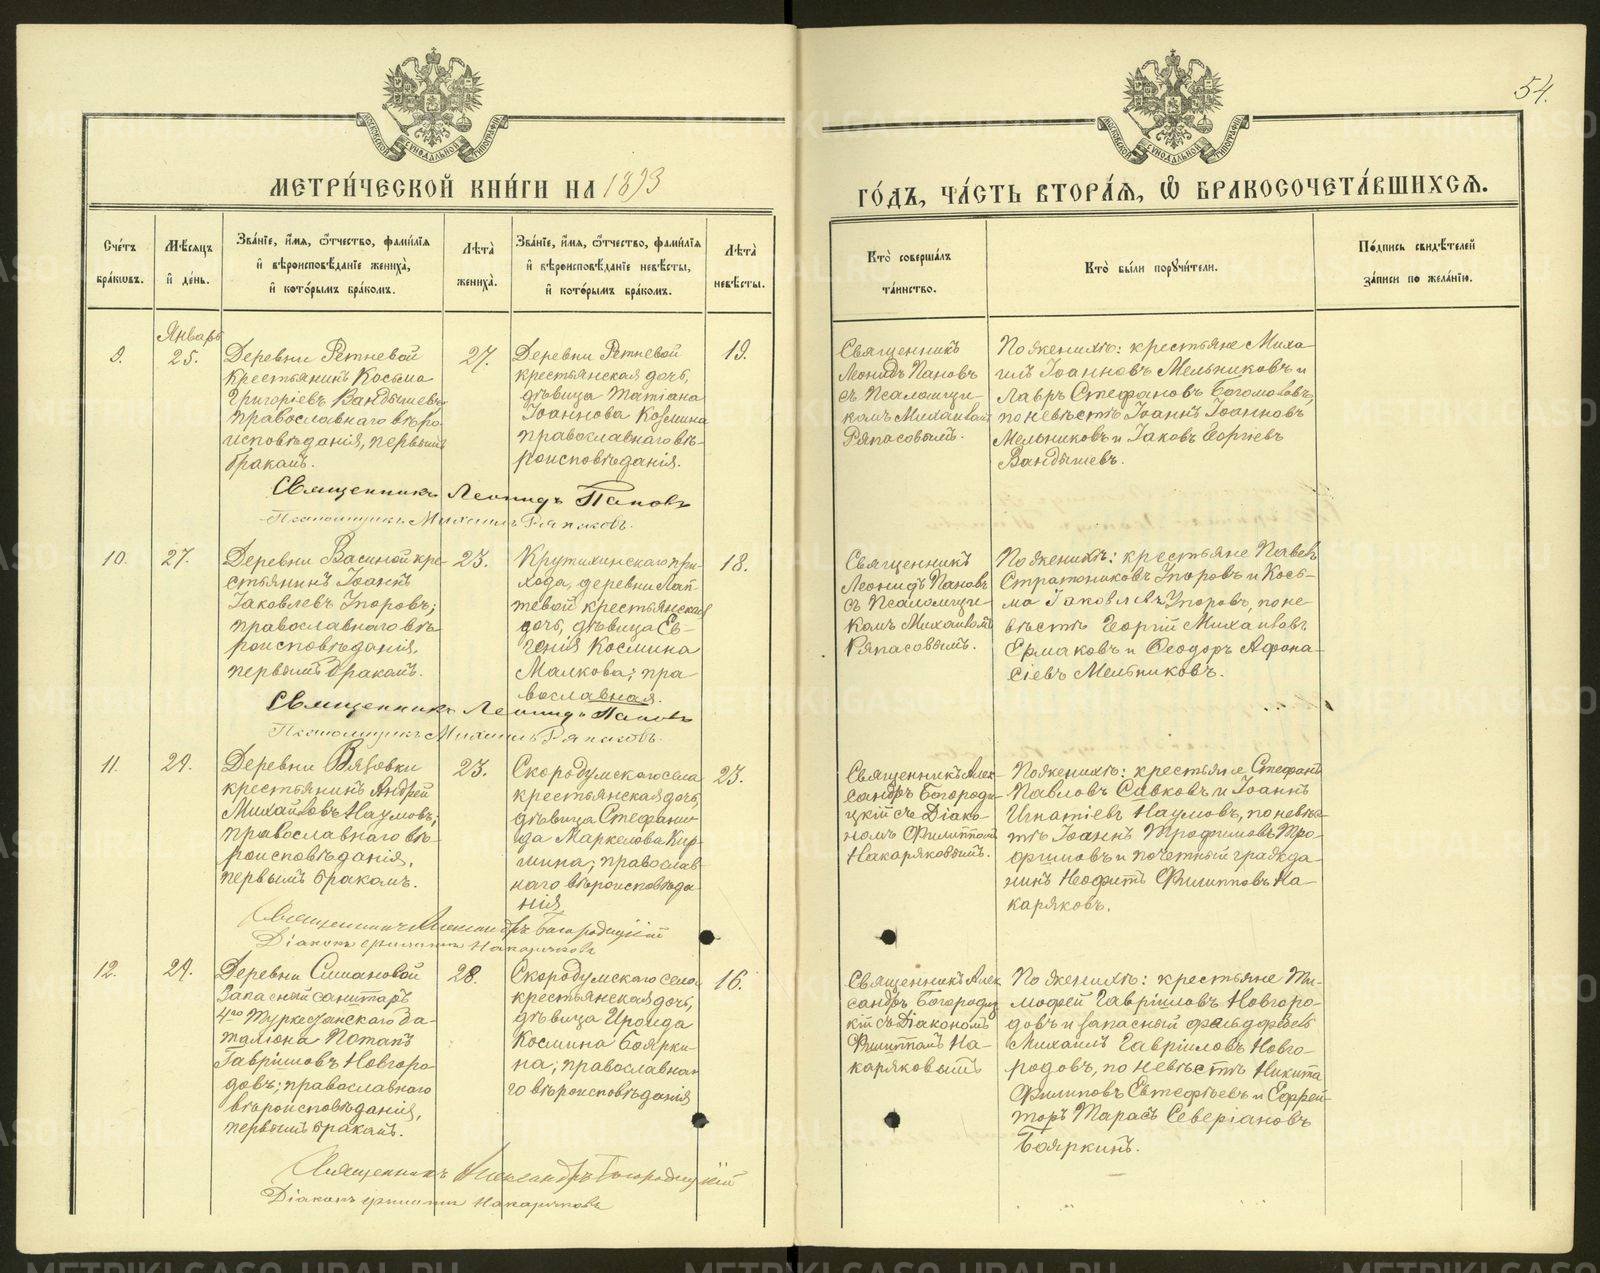 54.
МЕТРИЧЕСКОЙ КНИГИ НА 1893
ГОДЪ, ЧАСТЬ ВТОРАЯ, Ѿ БРАКОСОЧЕТАВШИХСЯ.
Счетъ браковъ.
Мѣсяцъ и день.
Званіе, имя, отчество, фамилія
и вѣроисповѣданіе жениха,
и которымъ бракомъ.
Лѣта жениха.
Званіе, имя, отчество, фамилія
и вѣроисповѣданіе невѣсты,
и которымъ бракомъ.
Лѣта невѣсты.
Кто совершалъ таинство.
Кто были поручители.
Подпись свидѣтелей записи по желанію.
9.
Январь
25.
Деревни Ретневой
крестьянинъ Косьма
Григоріевъ Вандышевъ,
православнаго вѣро-
исповѣданія, первымъ
бракомъ.
27.
Деревни Ретневой
крестьянская дочь,
дѣвица Татіана
Іоаннова Козмина
православнаго вѣ-
роисповѣданія.
19.
Священникъ
Леонидъ Пановъ
съ Псаломщи-
комъ Михаиломъ
Ряпасовымъ.
По женихѣ: крестьяне Миха-
илъ Іоанновъ Мельниковъ и
Лавръ Стефановъ Богомоловъ,
по невѣстѣ Іоаннъ Іоанновъ
Мельниковъ и Іаковъ Георгіевъ
Вандышевъ.
Священникъ Леонидъ Пановъ
Псаломщикъ Михаилъ Ряпасовъ.
10.
27.
Деревни Васиной кре-
стьянинъ Іоаннъ
Іаковлевъ Упоровъ;
православнаго вѣ-
роисповѣданія,
первымъ бракомъ.
23.
Крутихинскаго при-
хода, деревни Лап-
тевой крестьянская
дочь, дѣвица Ев-
генія Космина
Малкова; пра-
вославная.
18.
Священникъ
Леонидъ Пановъ
съ Псаломщи-
комъ Михаиломъ
Ряпасовымъ.
По женихѣ: крестьяне Павелъ
Стратониковъ Упоровъ и Кось-
ма Іаковлевъ Упоровъ, по не-
вѣстѣ Георгій Михаиловъ
Ермаковъ и Ѳеодоръ Афона-
сіевъ Мельниковъ.
Священникъ Леонидъ Пановъ
Псаломщикъ Михаилъ Ряпасовъ.
11.
29.
Деревни Вязовки
крестьянинъ Андрей
Михайловъ Наумовъ;
православнаго вѣ-
роисповѣданія,
первымъ бракомъ.
23.
Скородумскаго села
крестьянская дочь,
дѣвица Стефани-
да Маркелова Кир-
шина; православ
наго вѣроисповѣда-
нія
23.
Священникъ Алек-
сандръ Богороди-
цкій съ Діако-
номъ Филиппомъ
Накаряковымъ.
По женихѣ: крестьяне Стефанъ
Павловъ Савковъ и Іоаннъ
Игнатіевъ Наумовъ, по невѣс-
тѣ Іоаннъ Трофимовъ Тро-
фимовъ и почетный гражда-
нинъ Неофитъ Филипповъ На-
каряковъ.
Священникъ Александръ Богородицкій
Діаконъ Филиппъ Накаряковъ
12.
29.
Деревни Симановой
Запасный санитаръ
4го Туркестанскаго ба-
таліона Потапъ
Гавріиловъ Новгоро-
довъ; православнаго
вѣроисповѣданія,
первымъ бракомъ.
28.
Скородумскаго села
крестьянская дочь,
дѣвица Ироида
Космина Боярки-
на; православна-
го вѣроисповѣданія
16.
Священникъ Алек
сандръ Богородиц
кій съ Діакономъ
Филиппомъ На-
каряковымъ
По женихѣ: крестьяне Ти-
мофей Гавріиловъ Новгоро-
довъ и запасный фельдфебель
Михаилъ Гавріиловъ Новго-
родовъ, по невѣстѣ Никита
Филиповъ Евтефѣевъ и Ефрей-
торъ Тарасъ Северіановъ
Бояркинъ.
Священникъ Александръ Богородицкій
Діаконъ Филиппъ Накаряковъ